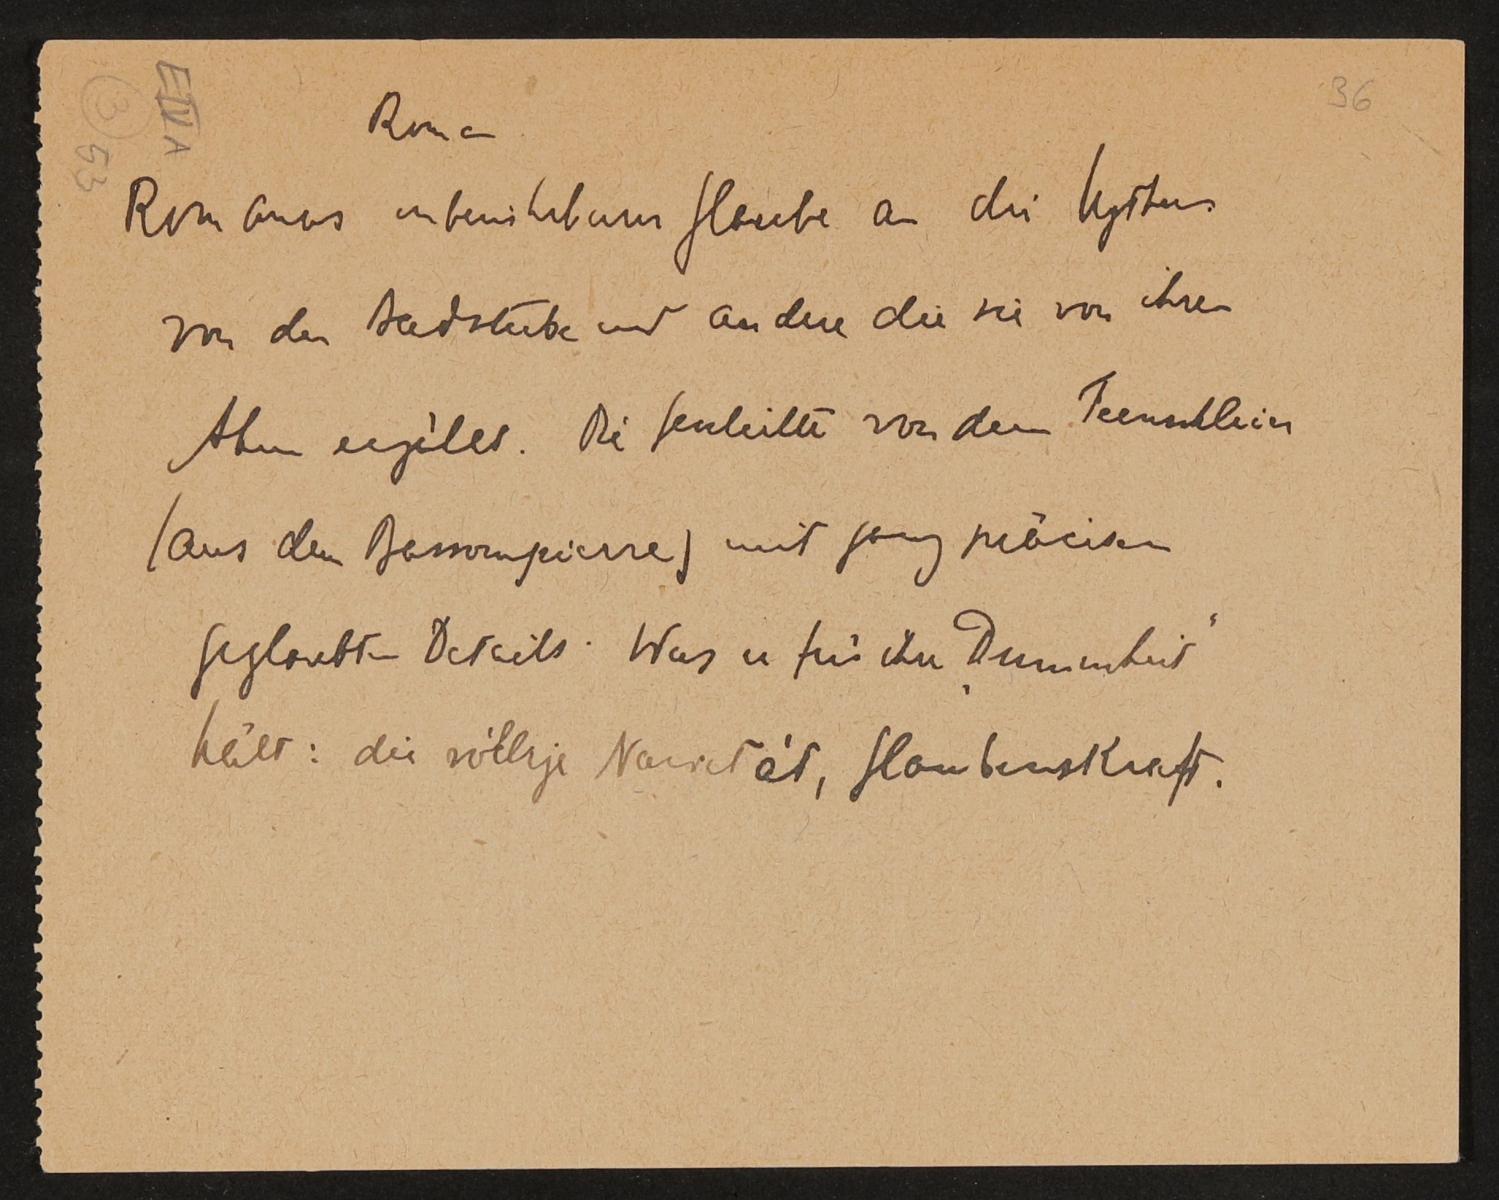 36
E IV A
3
53
Roman
Romanas Glaube an die Mythen
von der Badstube und andere die sie von ihren
Ahnen erzählt. Die Geschichte von dem Feenschleier
(aus dem Bassompierre) mit ganz präcisen
geglaubten Details. Was er für ihre „Dummheit“
hält: die völlige Naivetät, Glaubenskraft.